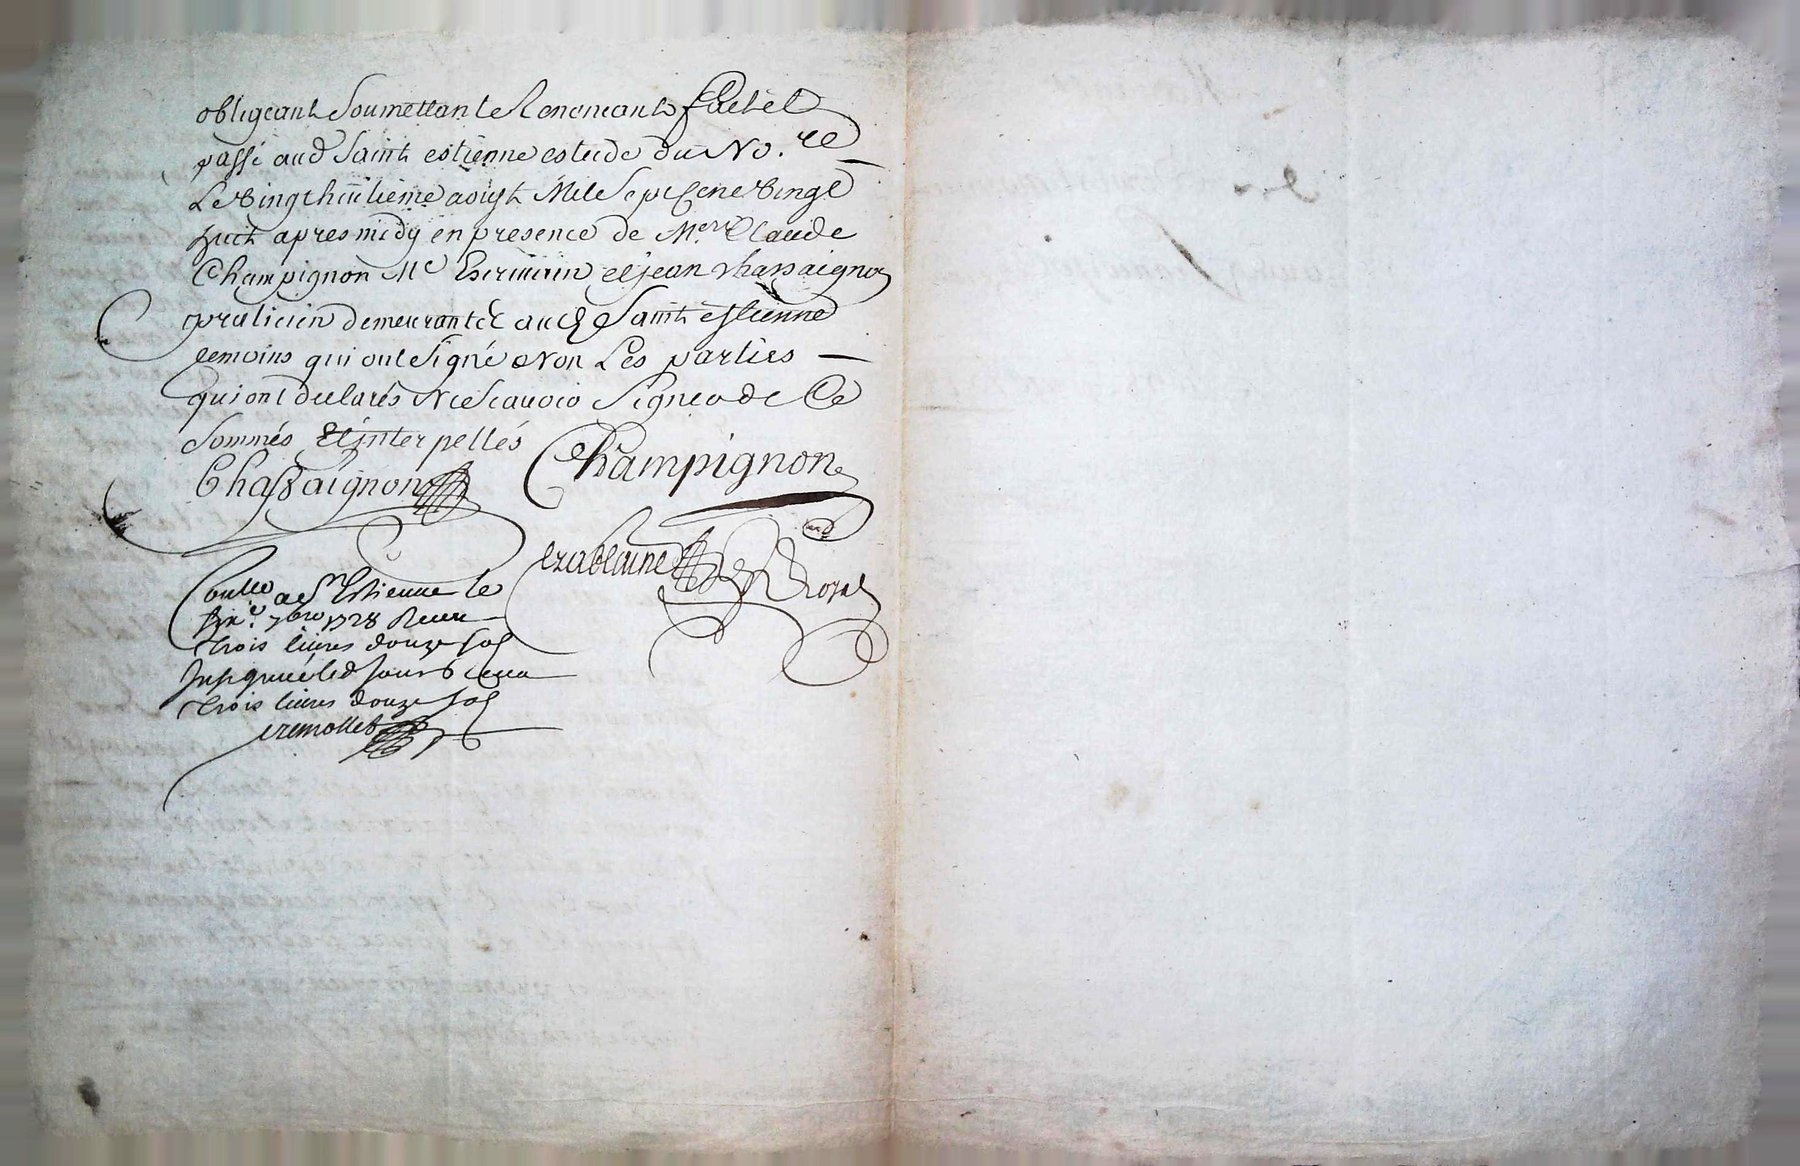 obligeant Soumettant et Renoncant fait et
passé aud Saint estienne estude du No.re
Le Vingt huitieme aoust Mile Sept Cent Vingt
huit apres midy en presence de Me.re Claude
Champignon Me Escrivain et jean chassaignon
praticien demeurant et aud Saint estienne
temoins qui ont Signé Non Les parties
qui ont declarés Ne Scavoir Signer de Ce
Sommés et interpellés
Chassaignon Champignon
Royal
Con.lle a St Estienne le
7bre 1728 Receu
trois livres douze sols
Insignué led jour
trois livres douze sols
cremollet